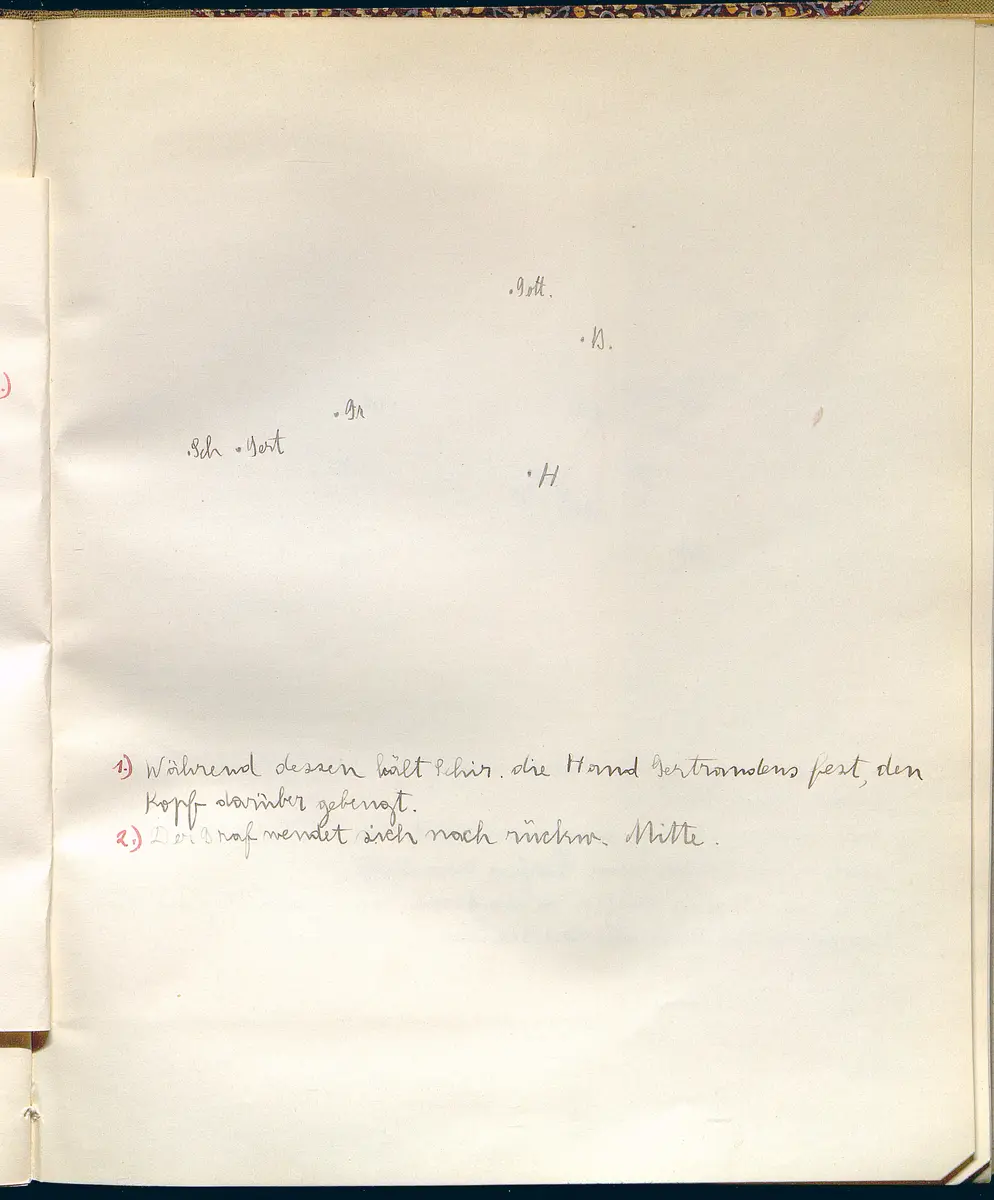 .)
.Gott.
.B.
.Gr
.Sch .Gert
.H
1.) Während dessen hält Schir. die Hand Gertraudens fest, den
Kopf darüber gebeugt.
2.) Der Graf wendet sich nach rückw. Mitte.